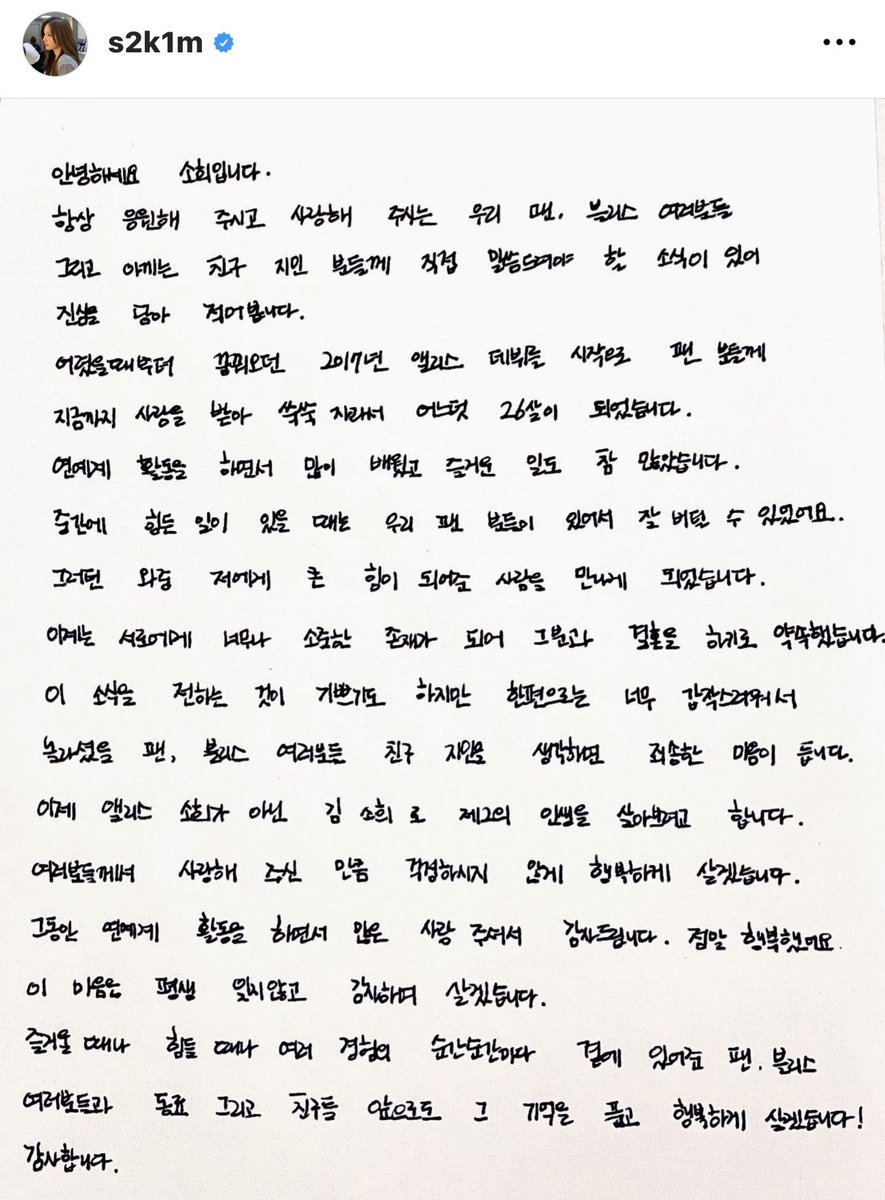 s2k1m
안녕하세요 소희입니다.
항상 응원해 주시고 사랑해 주시는 우리 팬, 블리스 여러분들
그리고 아끼는 친구 지인 분들께 직접 말씀드려야 할 소식이 있어
진심을 담아 적어봅니다.
어렸을때부터 꿈꿔오던 2017년 앨리스 데뷔를 시작으로 팬 분들께
지금까지 사랑을 받아 쑥쑥 자라서 어느덧 26살이 되었습니다.
연예계 활동을 하면서 많이 배웠고 즐거운 일도 참 많았습니다.
중간에 힘든 일이 있을 때는 우리 팬 분들이 있어서 잘 버틸 수 있었어요..
그러던 와중 저에게 큰 힘이 되어준 사람을 만나게 되었습니다.
이제는 서로에게 너무나 소중한 존재가 되어 그분과 결혼을 하기로 약속했습니다.
이 소식을 전하는 것이 기쁘기도 하지만 한편으로는 너무 갑작스러워서
놀라셨을 팬, 블리스 여러분들 친구 지인을 생각하면 죄송한 마음이 듭니다.
이제 앨리스 소희가 아닌 김 소희 로 제2의 인생을 살아보려고 합니다.
여러분들께서 사랑해 주신 만큼 걱정하시지 않게 행복하게 살겠습니다.
그동안 연예계 활동을 하면서 많은 사랑 주셔서 감사드립니다. 정말 행복했어요
이 마음은 평생 잊지않고 감사하며 살겠습니다.
즐거울 때나 힘들 때나 여러 경험의 순간순간마다 곁에 있어준 팬, 블리스
여러분들과 동료 그리고 친구들 앞으로도 그 기억을 품고 행복하게 살겠습니다!
감사합니다.